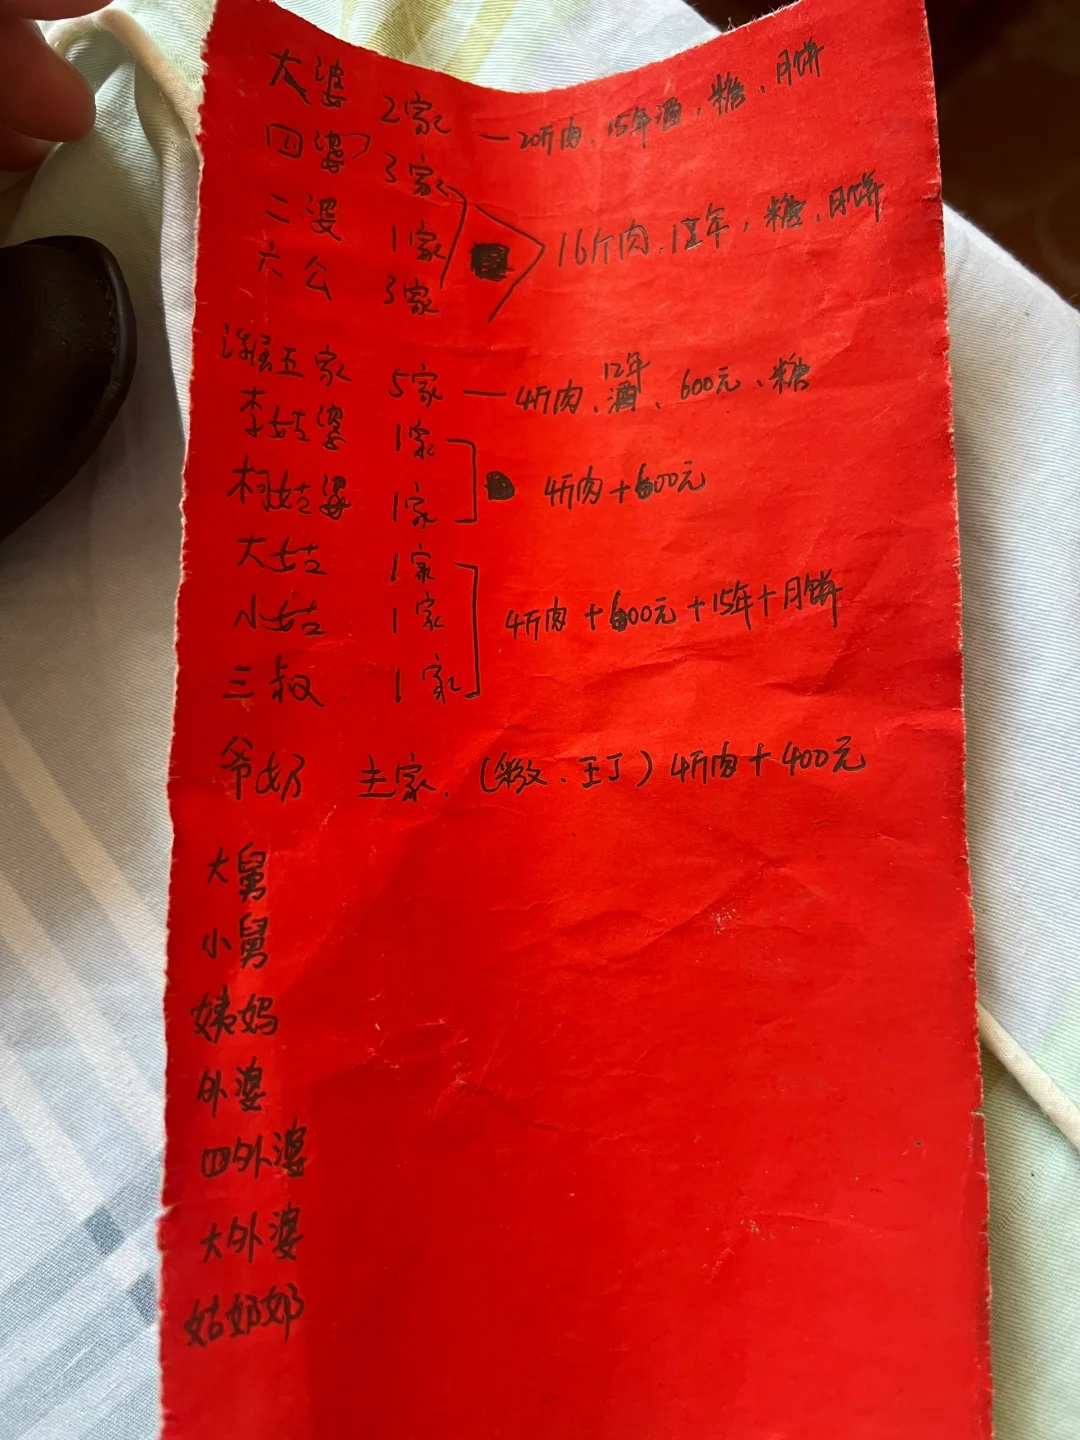 大婆 2家 — 20斤肉、15年酒、糖、月饼
四婆 3家
二婆 1家 16斤肉、12年、糖、月饼
六公 3家
五家 5家 — 4斤肉、12年酒、600元、糖
李姑婆 1家
柯姑婆 1家 4斤肉+600元
大姑 1家
小姑 1家 4斤肉+600元+15年+月饼
三叔 1家
爷奶 主家.( ) 4斤肉+400元
大舅
小舅
姨妈
外婆
四外婆
大外婆
姑奶奶